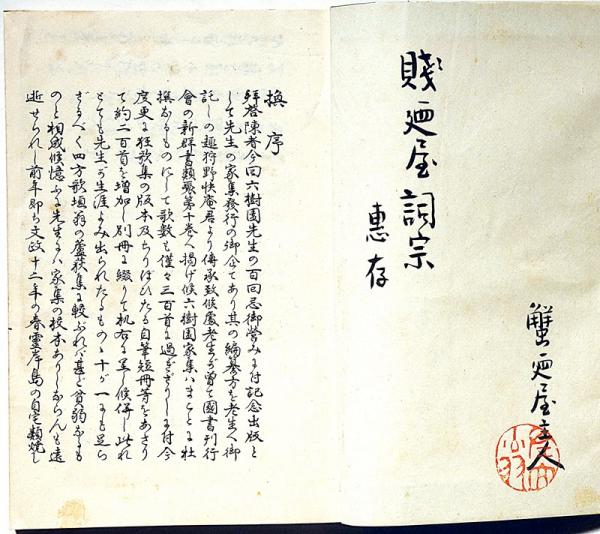 賤廼屋詞宗
惠存
蟹廼屋主人
換序
拝啓陳者今回六樹園先生の百回忌御営みに付記念出版と
して先生の家集發行の御企てあり其の編纂方を老生へ御
託しの趣狩野快庵君より傳承致候處老生が曾て國書刊行
會の新群書類聚第十巻へ掲げ候六樹園家集はまことに杜
撰なるものにして歌数も僅々三百首に過ぎざりしに付今
度更に狂歌集の版本及ちりぼひたる自筆短冊等をあさり
て約二百首を増加し別冊に綴りて机右に呈し候併し此れ
とても先生が生涯よみ出られたるものゝ十が一にも足ら
ざるべく四方歌垣翁の蘆荻集に較ぶれば甚ど貧弱なるも
のと相成候憶ふに先生には家集の校本ありしならんも遠
逝せられし前年即ち文政十二年の春霊岸島の自宅類焼し